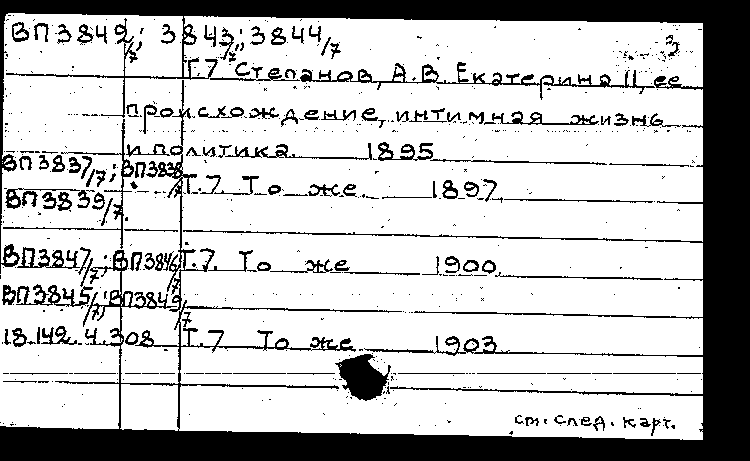 ВП3842/7; 3843/7; 3844/7
3
Т.7 Степанов, А.В. Екатерина II, ее
происхождение, интимная жизнь
и политика. 1895
ВП3837/7; ВП3838/7
Т.7 То же. 1897
ВП3839/7.
ВП3847/7; ВП3846/7 Т.7. То же 1900
ВП3845/7; ВП3849/7
18.142.4.308 Т.7 То же 1903
см. след. карт.